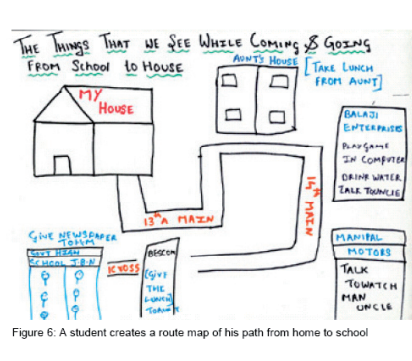 THE THINGS THAT WE SEE WHILE COMING & GOING
FROM SCHOOL to HOUSE
AUNT'S HOUSE
[TAKE LUNCH
FROM AUNT]
MY
HOUSE
BALAJI
ENTERPRISES
PLAYGAME
IN COMPUTER
DRINK WATER
TALK TOUNCLE
13th A MAIN
14th MAIN
GIVE NEWSPAPER
TO HM
GOVT HIGH
SCHOOL J.B.N
I CROSS
BESCOM
(GIVE
THE
LUNCH)
MANIPAL
MOTORS
TALK
TO WATCH
MAN
UNCLE
Figure 6: A student creates a route map of his path from home to school